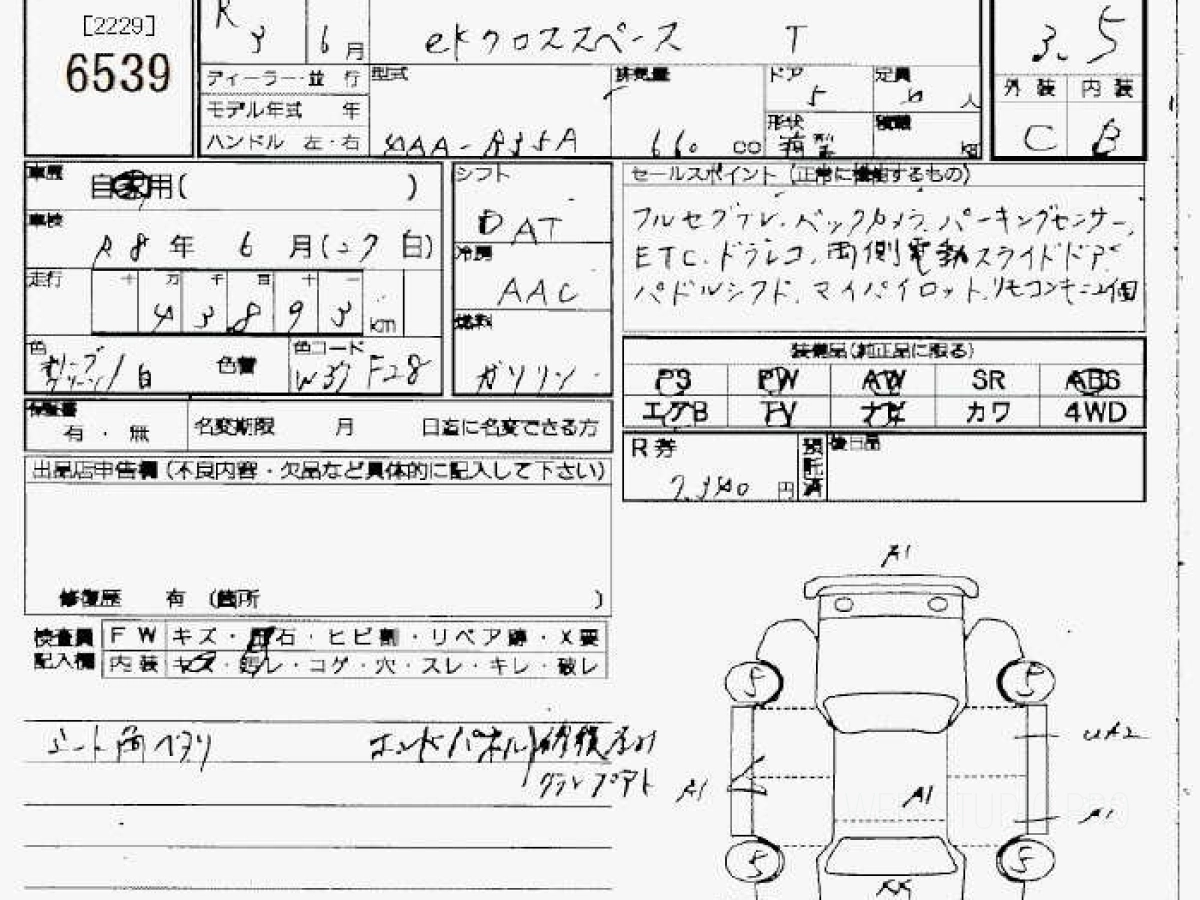 [2229]
6539
R 3 6 月
eKクロススペース T
3.5
ディーラー・並 行
モデル年式 年
ハンドル 左・右
型式
4AA-B35A
排気量
660 cc
ドア
5
定員
4 人
形状
積載
kg
外 装 内 装
C B
車歴
自家用( )
車検
R8 年 6 月(27 日)
走行
十 万 千 百 十 一
4 3 8 9 3 km
色
オリーブ
グリーン/白
色替
色コード
W37 F28
シフト
DAT
冷房
AAC
燃料
ガソリン
セールスポイント (正常に機能するもの)
フルセグテレ、バックカメラ、パーキングセンサー、
ETC、ドラレコ、両側電動スライドドア、
パドルシフト、マイパイロット、リモコンキー2個
装備品(純正品に限る)
PS PW AW SR ABS
エアB TV ナビ カワ 4WD
保証書
有 ・ 無
名変期限 月 日迄に名変できる方
R 券
円
預託済
後日品
出品店申告欄 (不良内容・欠品など具体的に記入して下さい)
修復歴 有 (箇所 )
検査員
記入欄
F W キズ・飛石・ヒビ割・リペア跡・X要
内 装 キズ・汚レ・コゲ・穴・スレ・キレ・破レ
シート両ヘタリ
エンドパネル修復済み
クランプアト
A1
5 5
A1
A1
A1
5 5